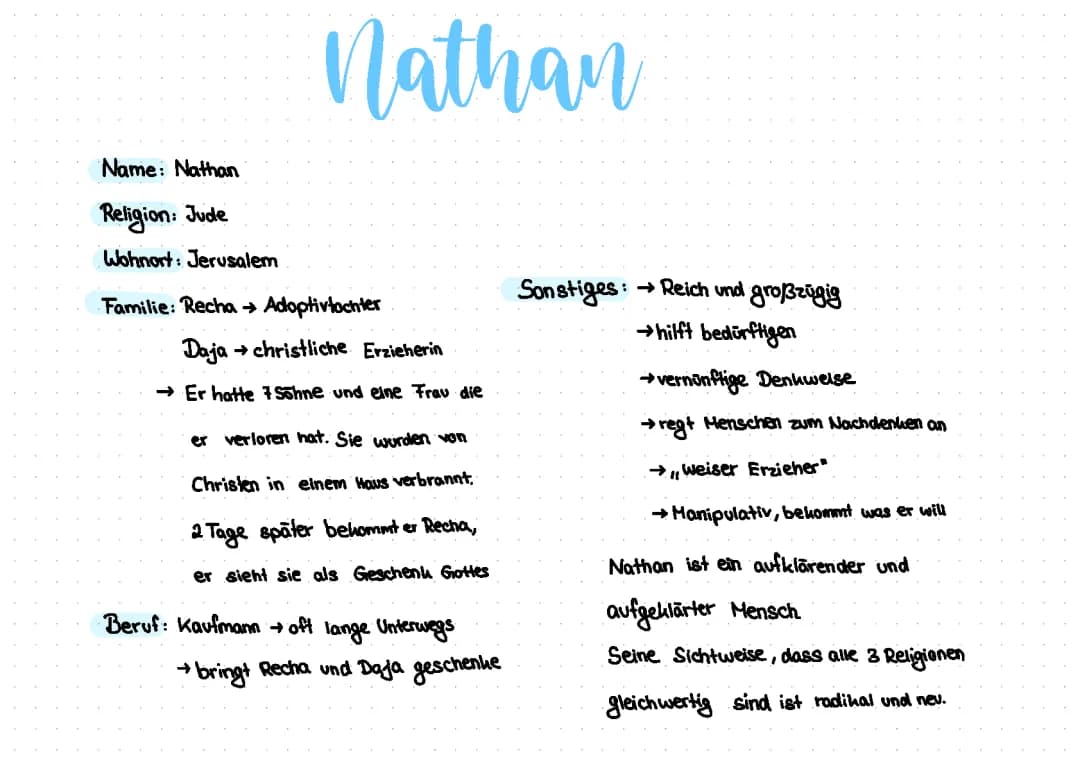 Nathan
Name: Nathan
Religion: Jude
Wohnort: Jerusalem
Familie: Recha → Adoptivtochter
Daja → christliche Erzieherin
→ Er hatte 7 Söhne und eine Frau die
er verloren hat. Sie wurden von
Christen in einem Haus verbrannt.
2 Tage später bekommt er Recha,
er sieht sie als Geschenk Gottes
Beruf: Kaufmann → oft lange Unterwegs
→ bringt Recha und Daja geschenke
Sonstiges: → Reich und großzügig
→ hilft bedürftigen
→ vernünftige Denkweise
→ regt Menschen zum Nachdenken an
→ „weiser Erzieher"
→ Manipulativ, bekommt was er will
Nathan ist ein aufklärender und
aufgeklärter Mensch
Seine Sichtweise, dass alle 3 Religionen
gleichwertig sind ist radikal und neu.